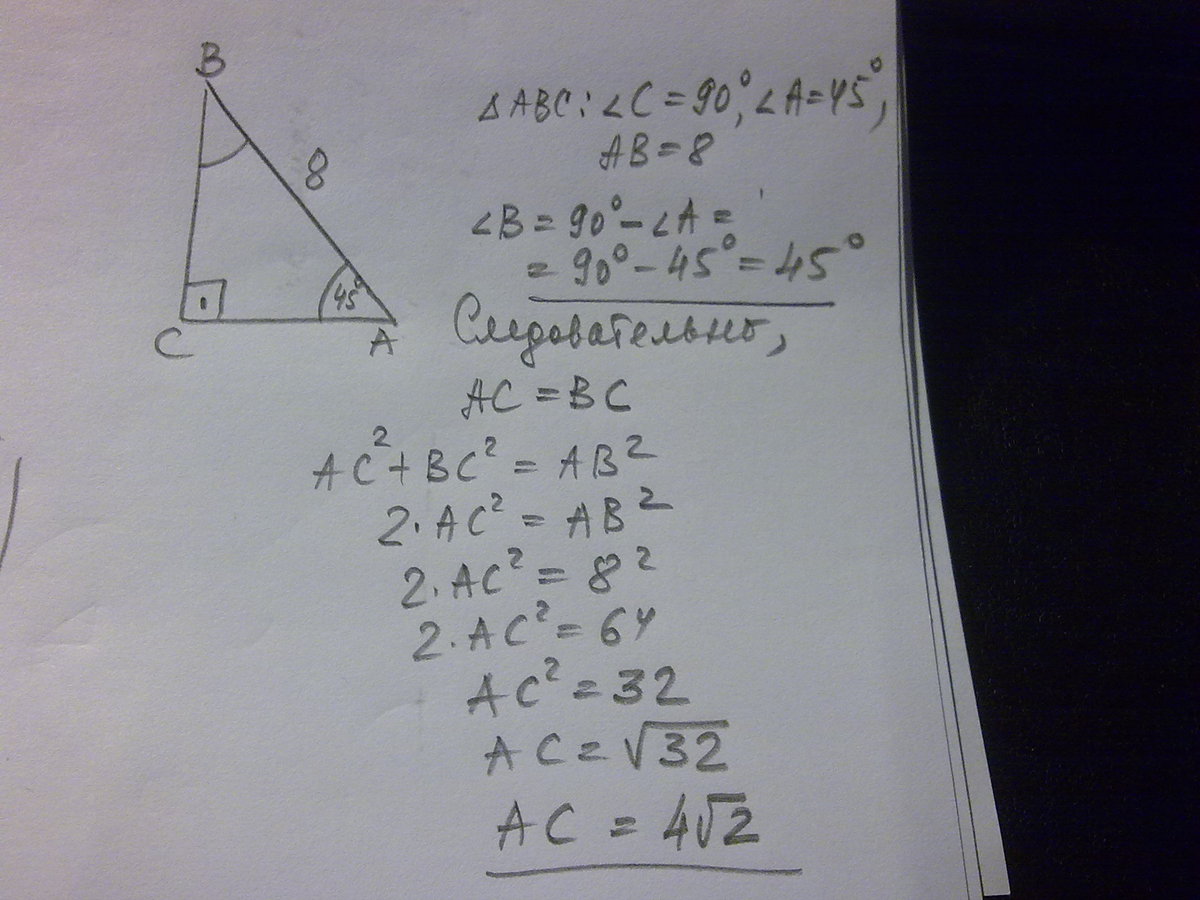 B
8
45°
C
A
△ABC: ∠C = 90°, ∠A = 45°,
AB = 8
∠B = 90° – ∠A =
= 90° – 45° = 45°
Следовательно,
AC = BC
AC² + BC² = AB²
2·AC² = AB²
2·AC² = 8²
2·AC² = 64
AC² = 32
AC = √32
AC = 4√2